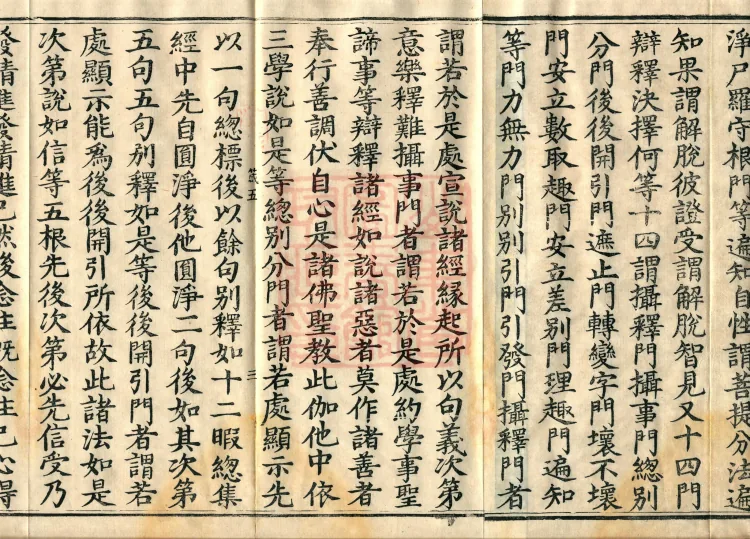 淨尸羅守根門等遍知自性謂菩提分法遍
知果謂解脫彼證受謂解脫智見又十四門
辯釋決擇何等十四謂攝釋門攝事門總別
分門後後開引門遮止門轉變字門壞不壞
門安立數取趣門安立差別門理趣門遍知
等門力無力門別別引門引發門攝釋門者
謂若於是處宣說諸經緣起所以句義次第
意樂釋難攝事門者謂若於是處約學事聖
諦事等辯釋諸經如說諸惡者莫作諸善者
奉行善調伏自心是諸佛聖教此伽他中依
三學說如是等總別分門者謂若處顯示先
箴五
三
以一句總標後以餘句別釋如十二暇總集
經中先自圓淨後他圓淨二句後如其次第
五句五句別釋如是等後後開引門者謂若
處顯示能為後後開引所依故此諸法如是
次第說如信等五根先後次第必先信受乃
發精進發精進已然後念住旣念住已心得